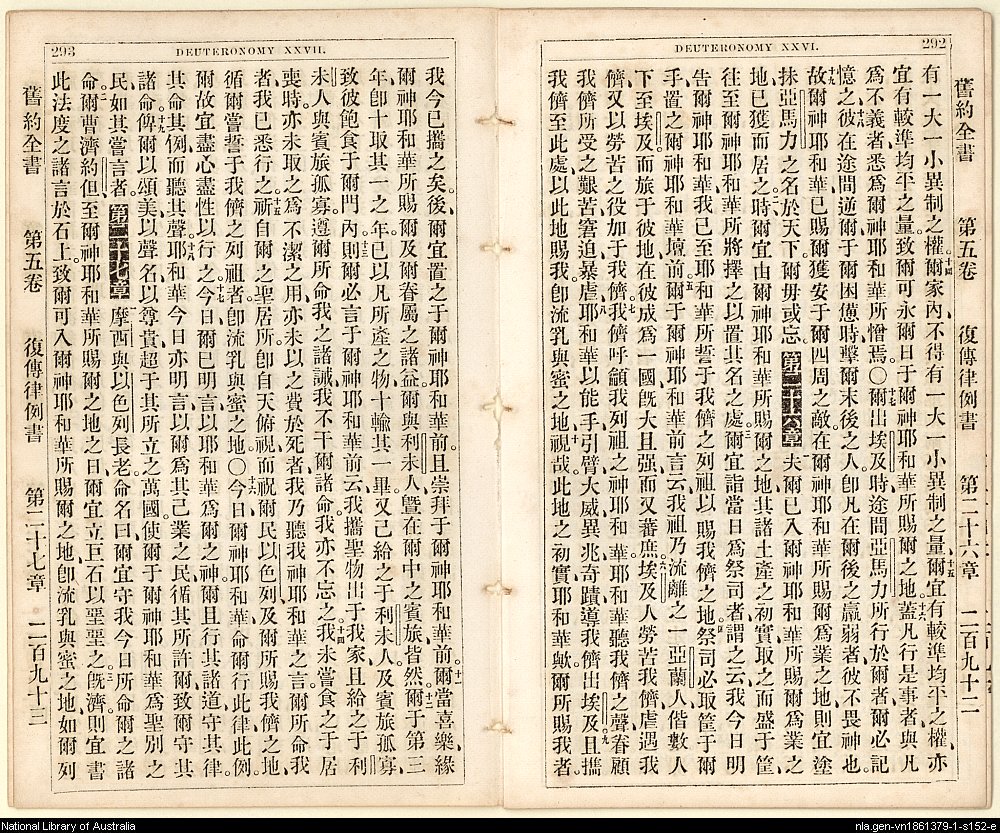 292
DEUTERONOMY XXVI.
舊約全書 第五卷 復傳律例書 第二十六章 二百九十二
有一大一小異制之權。十四爾家內不得有一大一小異制之量、十五爾宜有較準均平之權、亦
宜有較準均平之量、致爾可永爾日于爾神耶和華所賜爾之地。十六蓋凡行是事者、與凡
為不義者、悉為爾神耶和華所憎焉。〇十七爾出埃及時途間亞馬力所行於爾者、爾必記
憶之、十八彼在途間遞爾于爾困憊時、擊爾末後之人、卽凡在爾後之羸弱者、彼不畏神也。
十九故爾神耶和華、已賜爾獲安于爾四周之敵、在爾神耶和華所賜爾為業之地、則宜塗
抹亞馬力之名於天下、爾毋或忘。 第二十六章 一夫爾已入爾神耶和華所賜爾為業之
地、已獲而居之、二時爾宜由爾神耶和華所賜爾之地、其諸土產之初實取之而盛于筐、
往至爾神耶和華所將擇之以置其名之處。三爾宜詣當日為祭司者、謂之云、我今日明
告爾神耶和華、我已至耶和華所誓于我儕之列祖以賜我儕之地。四祭司必取筐于爾
手、置之爾神耶和華壇前。五爾于爾神耶和華前言云、我祖乃流離之一亞蘭人、偕數人
下至埃及而旅于彼地、在彼成為一國、旣大且强而又蕃庶。六埃及人勞苦我儕、虐遇我
儕、又以勞苦之役加于我儕。七我儕呼籲我列祖之神耶和華、耶和華聽我儕之聲、眷顧
我儕所受之艱苦窘迫暴虐。八耶和華以能手引臂、大威異兆奇蹟、導我儕出埃及。九且攜
我儕至此處、以此地賜我、卽流乳與蜜之地。十視哉此地之初實、耶和華歟、爾所賜我者、
293
DEUTERONOMY XXVII.
我今已攜之矣。後爾宜置之于爾神耶和華前、且崇拜于爾神耶和華前。十一爾當喜樂、緣
爾神耶和華所賜爾及爾眷屬之諸益、爾與利未人、暨在爾中之賓旅皆然。十二爾于第三
年、卽十取其一之年、已以凡所產之物、十輸其一畢、又己給之于利未人、及賓旅孤寡、
致彼飽食于爾門內、十三則爾必言于爾神耶和華前云、我攜聖物出于我家、且給之于利
未人、與賓旅孤寡、遵爾所命我之諸誡、我不干爾諸命、我亦不忘之。十四我未嘗食之于居
喪時、亦未取之為不潔之用、亦未以之費於死者、我乃聽我神耶和華之言、爾所命我
者、我已悉行之。十五祈自爾之聖居所、卽自天俯視、而祝爾民以色列、及爾所賜我儕之地、
循爾嘗誓于我儕之列祖者、卽流乳與蜜之地。〇十六今日爾神耶和華命爾行此律此例、
爾故宜盡心盡性以行之。十七今日爾已明言以耶和華為爾之神、爾且行其諸道、守其律
其命其例、而聽其聲。十八耶和華今日亦明言以爾為其己業之民、循其所許爾、致爾守其
諸命、十九俾爾以頌美、以聲名、以尊貴、超于其所立之萬國、使爾于爾神耶和華為聖別之
民、如其嘗言者。 第二十七章 摩西與以色列長老命名曰、爾宜守我今日所命爾之諸
命。二爾曹濟約但、至爾神耶和華所賜爾之地之日、爾宜立巨石以堊堊之。三旣濟則宜書
此法度之諸言於石上、致爾可入爾神耶和華所賜爾之地、卽流乳與蜜之地、如爾列
舊約全書 第五卷 復傳律例書 第二十七章 二百九十三
National Library of Australia
nla.gen-vn1861379-1-s152-e